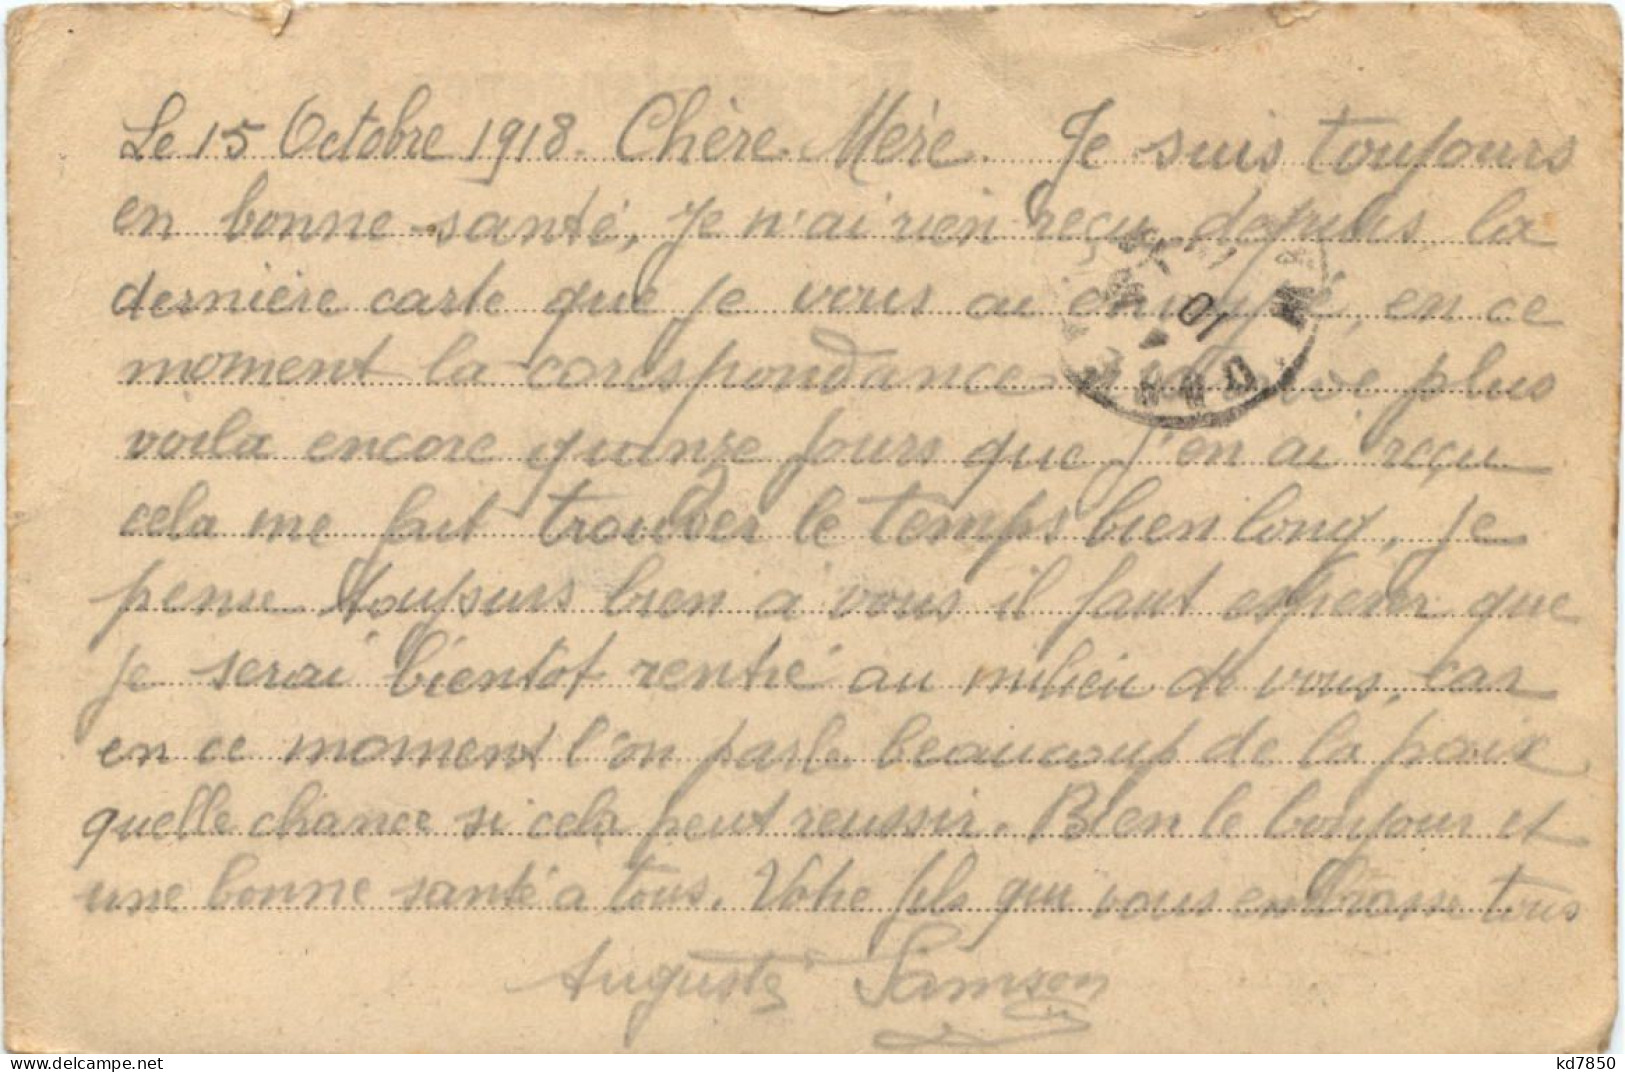 Le 15 Octobre 1918. Chère Mère. Je suis toujours
en bonne santé, Je n'ai rien reçu depuis la
dernière carte que je vous ai envoyé, en ce
moment la corespondance n'arrive plus
voila encore quinze jours que j'en ai reçu
cela me fait trouver le temps bien long, je
pense toujours bien a vous il faut espérer que
je serai bientôt rentré au milieu de vous, car
en ce moment l'on parle beaucoup de la paix
quelle chance si cela peut reussir. Bien le bonjour et
une bonne santé a tous. Votre fils qui vous embrasse tous
Auguste Samson
10
www.delcampe.net
kd7850